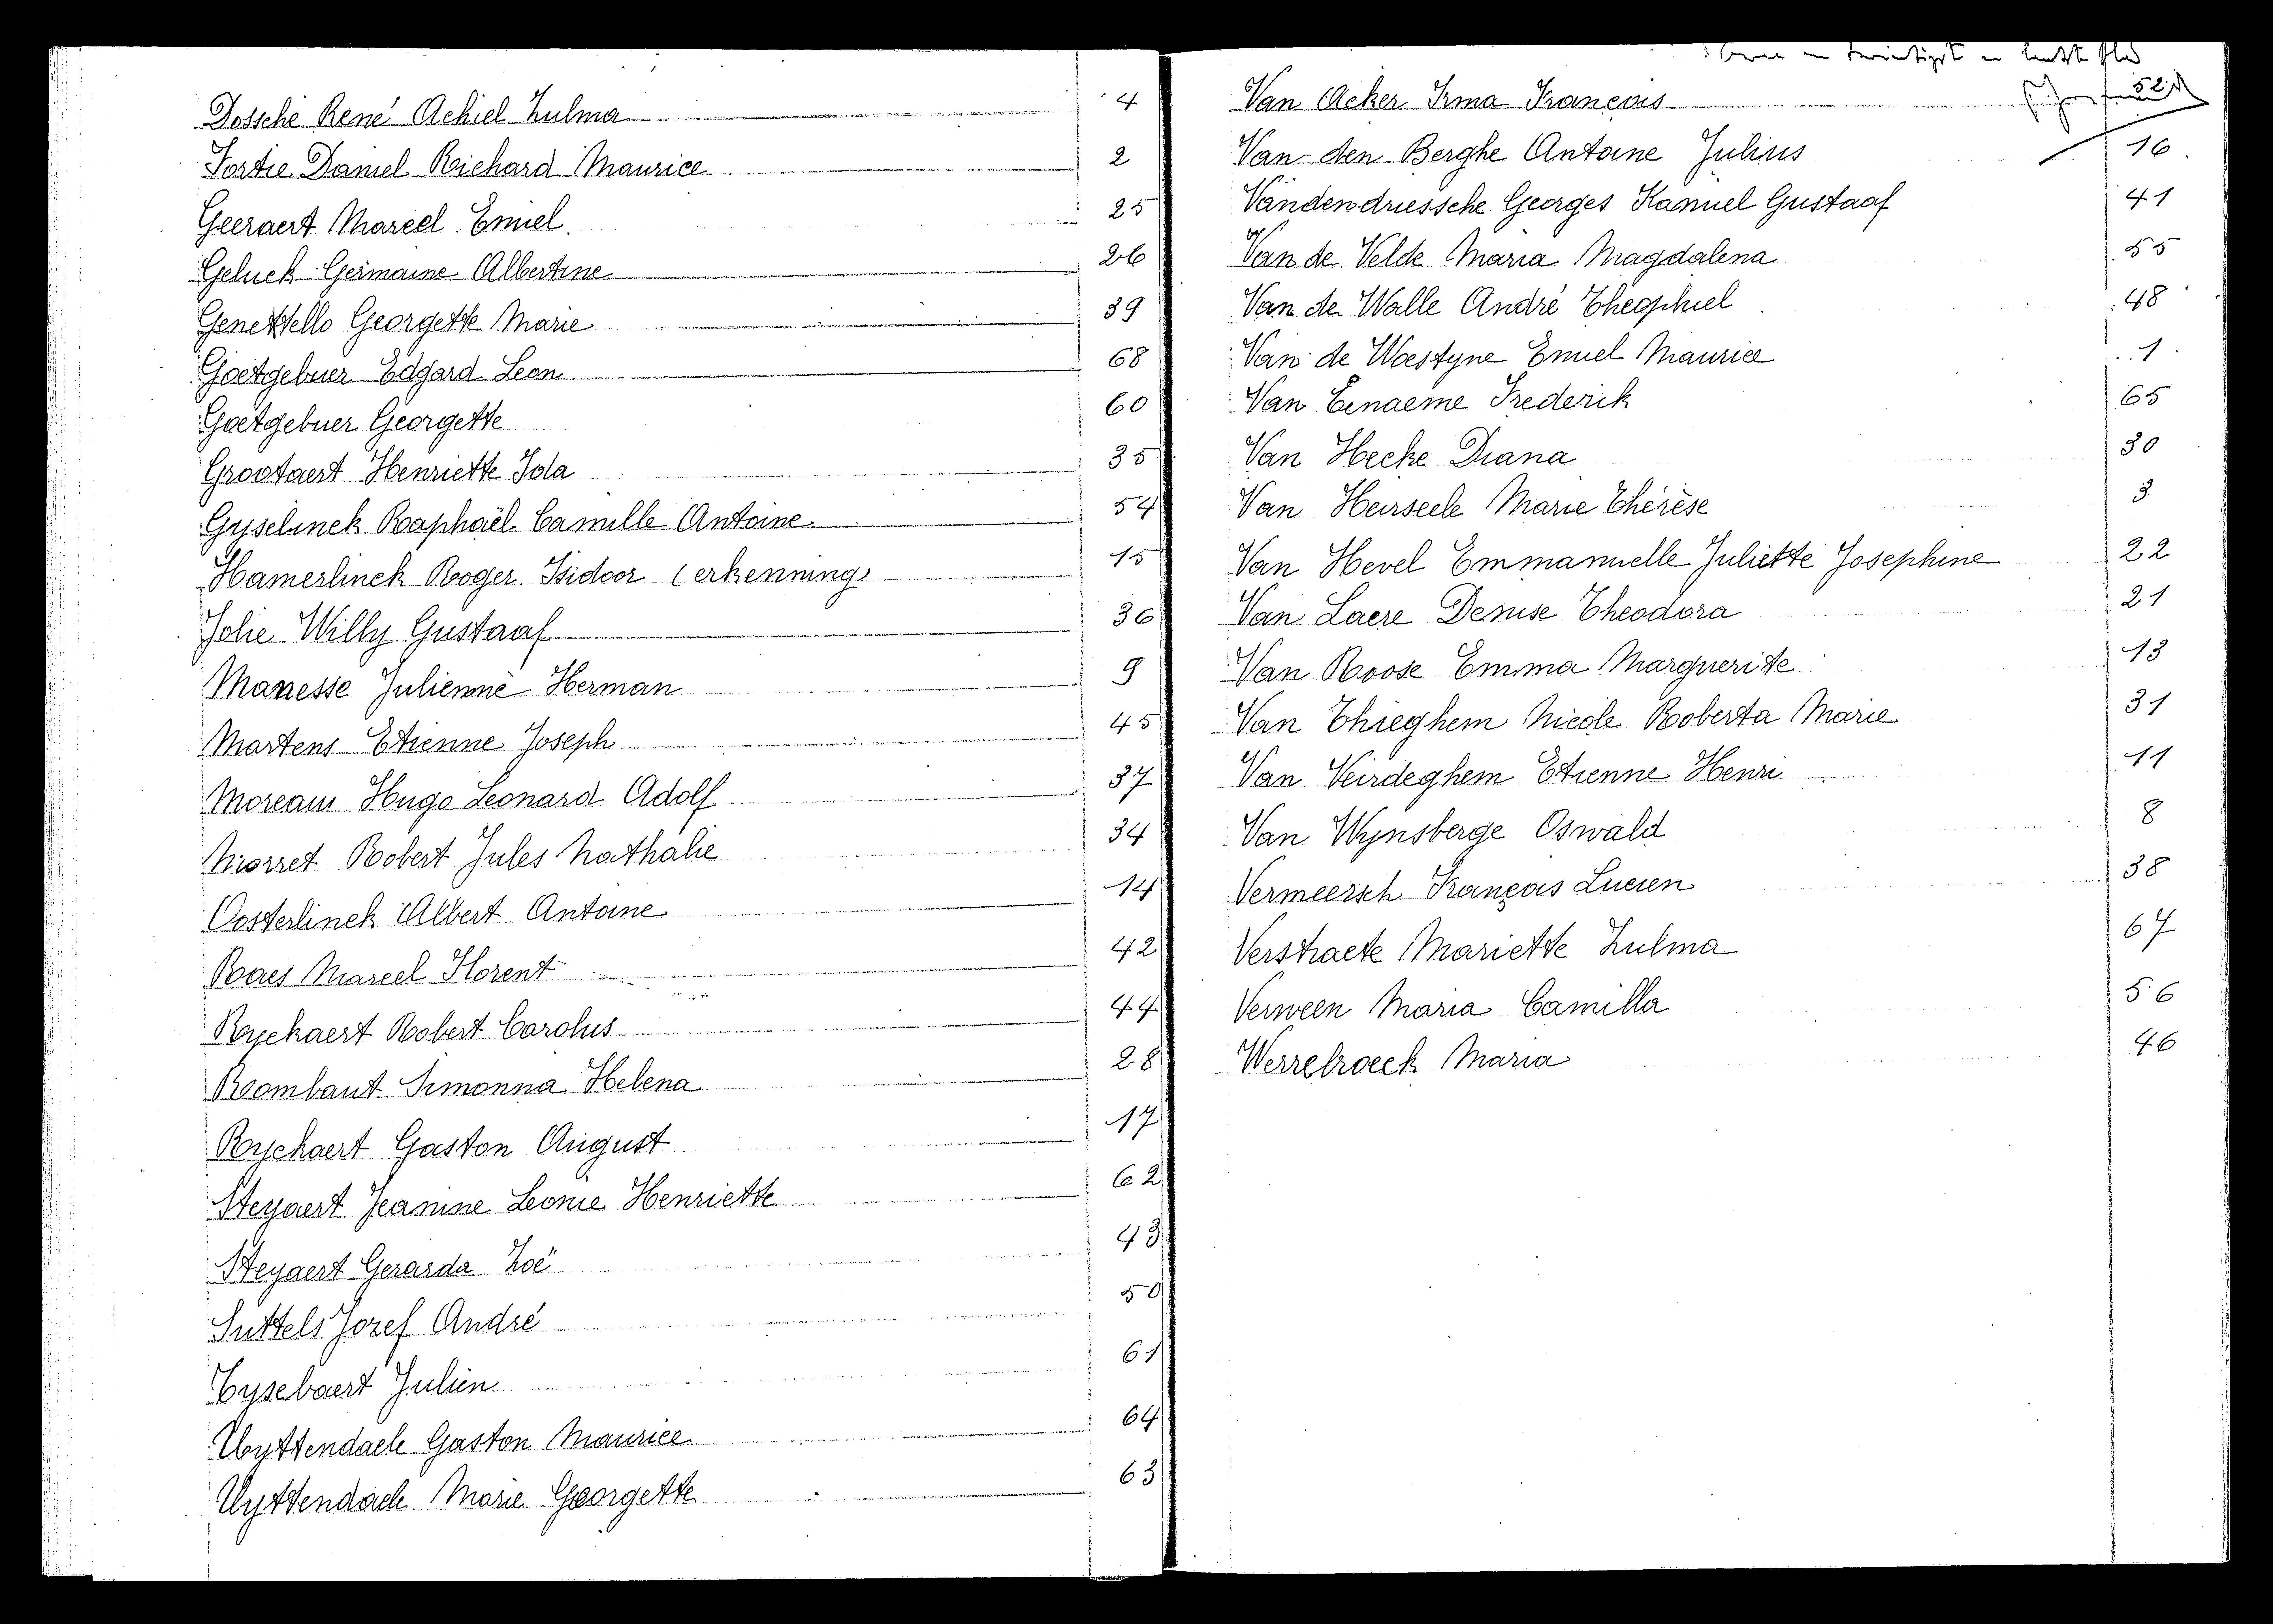 Dossche René Achiel Zulma 4
Fortie Daniel Richard Maurice 2
Geeraert Marcel Emiel 25
Geluck Germaine Albertine 26
Genettello Georgette Marie 39
Goetgebuer Edgard Leon 68
Goetgebuer Georgette 60
Grootaert Henriette Ida 35
Gyselinck Raphaël Camille Antoine 54
Hamerlinck Roger Isidoor (erkenning) 15
Jolie Willy Gustaaf 36
Manesse Julienne Herman 9
Martens Etienne Joseph 45
Moreau Hugo Leonard Adolf 37
Robert Jules Nathalie 34
Oosterlinck Albert Antoine 14
Raes Marcel Florent 42
Ryckaert Robert Carolus 44
Rombaut Simonna Helena 28
Ryckaert Gaston August 17
Steyaert Jeanine Leonie Henriette 62
Steyaert Gerarda Zoé 43
Suttels Jozef André 50
Tysebaert Julien 61
Uyttendaele Gaston Maurice 64
Uyttendaele Marie Georgette 63
en twintigste en laatste blad
Van Acker Irma François 52
Van den Berghe Antoine Julius 16
Vandendriessche Georges Kamiel Gustaaf 41
Van de Velde Maria Magdalena 55
Van de Walle André Theophiel 48
Van de Woestyne Emiel Maurice 1
Van Eenaeme Frederik 65
Van Hecke Diana 30
Van Heirseele Marie Thérèse 3
Van Hevel Emmanuelle Juliette Josephine 22
Van Laere Denise Theodora 21
Van Roose Emma Marguerite 13
Van Thieghem Nicole Roberta Marie 31
Van Veirdeghem Etienne Henri 11
Van Wynsberge Oswald 8
Vermeersch François Lucien 38
Verstraete Mariette Zulma 67
Verween Maria Camilla 56
Werrebroeck Maria 46